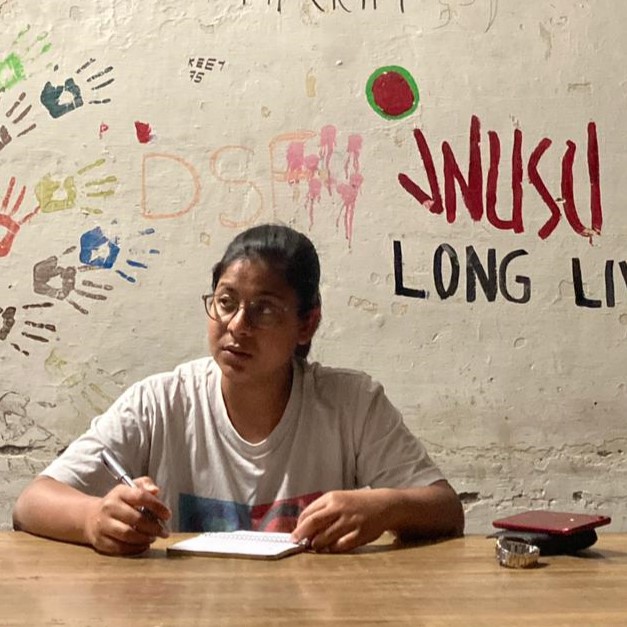 KEET
75
DSF
JNUSU
LONG LIV